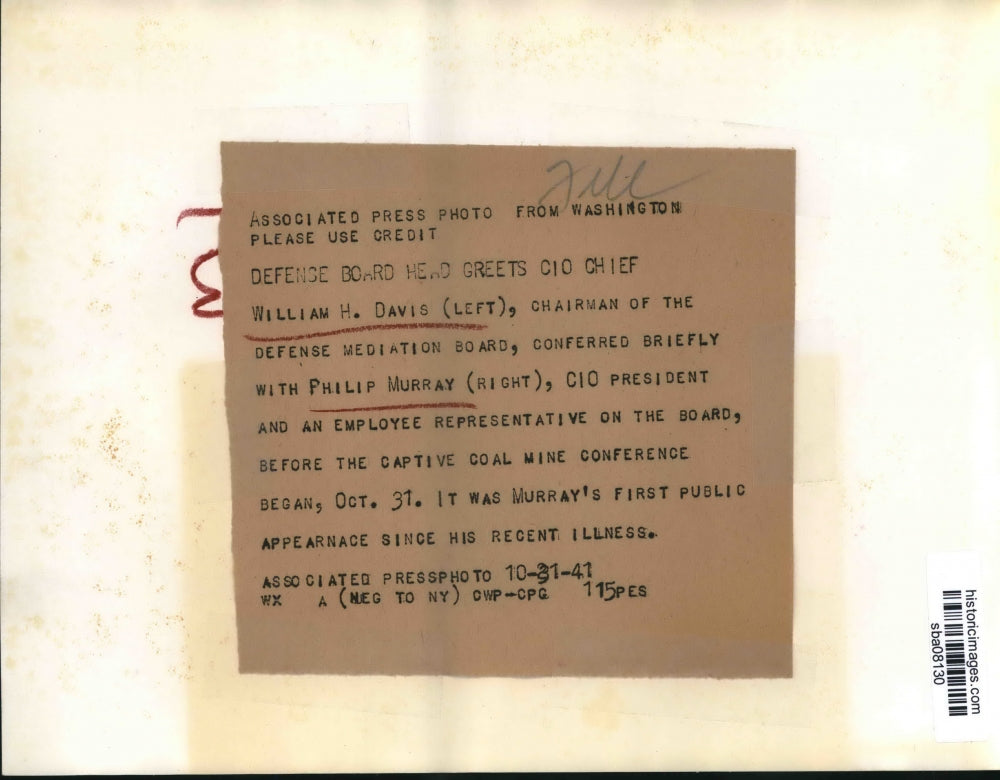 File
ASSOCIATED PRESS PHOTO FROM WASHINGTON
PLEASE USE CREDIT
DEFENSE BOARD HEAD GREETS CIO CHIEF
WILLIAM H. DAVIS (LEFT), CHAIRMAN OF THE
DEFENSE MEDIATION BOARD, CONFERRED BRIEFLY
WITH PHILIP MURRAY (RIGHT), CIO PRESIDENT
AND AN EMPLOYEE REPRESENTATIVE ON THE BOARD,
BEFORE THE CAPTIVE COAL MINE CONFERENCE
BEGAN, OCT. 31. IT WAS MURRAY'S FIRST PUBLIC
APPEARNACE SINCE HIS RECENT ILLNESS.
ASSOCIATED PRESSPHOTO 10-31-41
WX A (NEG TO NY) CWP-CPG 115PES
historicimages.com
sba08130